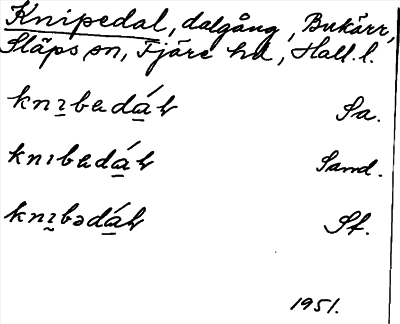 Knipedal, dalgång, Bukärr,
Släps sn, Fjäre hd, Hall. l.
knɪ̱bɐdá̱ɫ Sa.
knıbɐdá̱ɫ Sand.
knɪ̰bədá̱ɫ St.
1951.